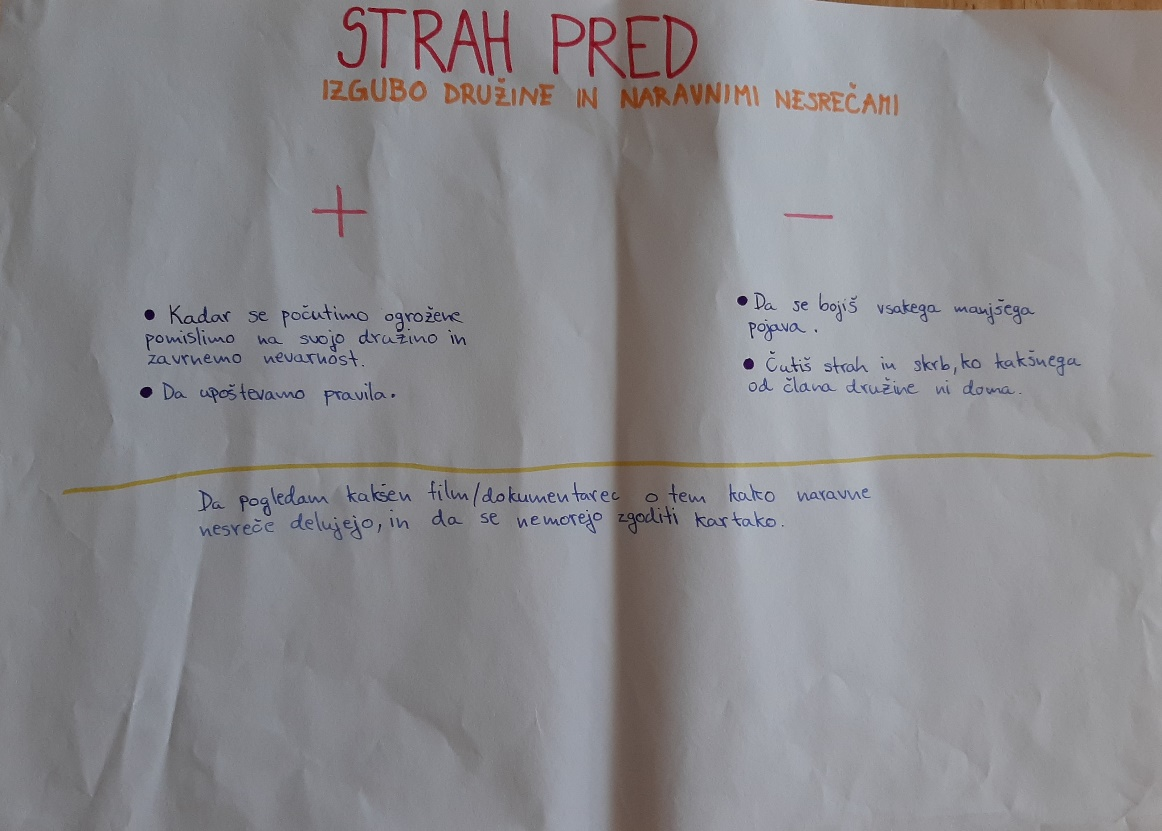 STRAH PRED
IZGUBO DRUŽINE IN NARAVNIMI NESREČAMI
+
• Kadar se počutimo ogrožene
pomislimo na svojo družino in
zavrnemo nevarnost.
• Da upoštevamo pravila.
—
• Da se bojiš vsakega manjšega
pojava.
• Čutiš strah in skrb, ko kakšnega
od člana družine ni doma.
Da pogledam kakšen film/dokumentarec o tem kako naravne
nesreče delujejo, in da se nemorejo zgoditi kartako.